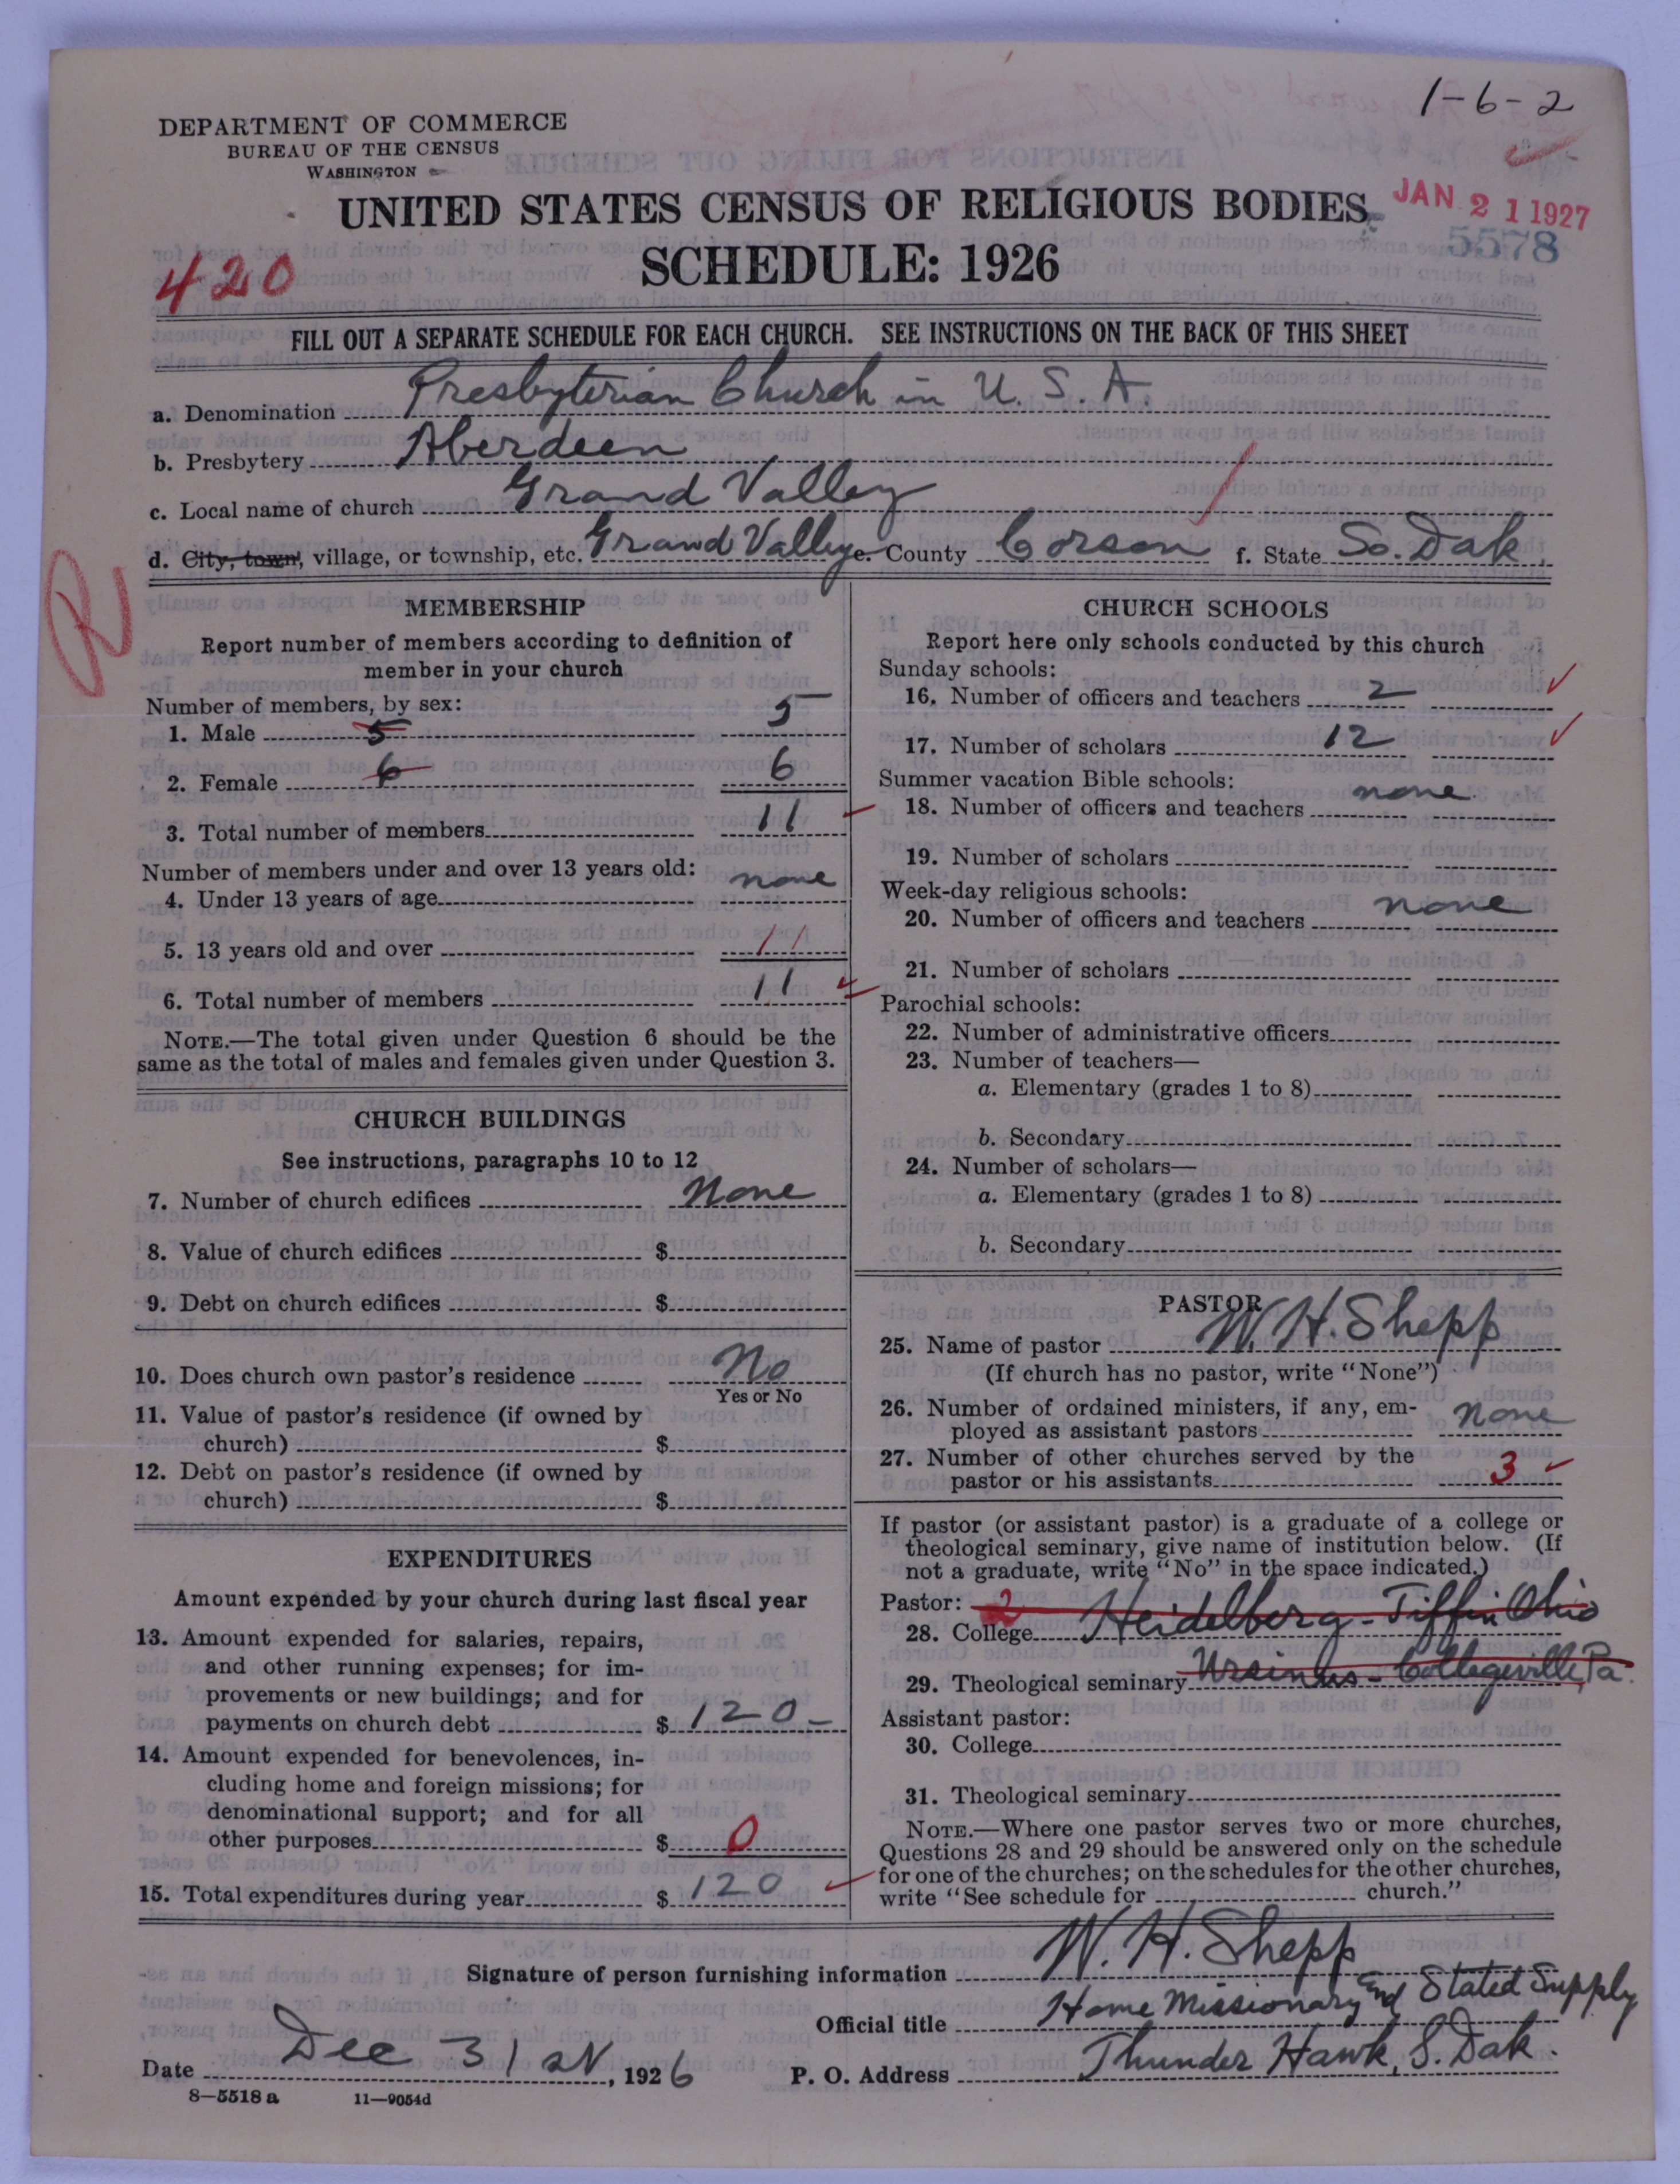 1-6-2
DEPARTMENT OF COMMERCE
BUREAU OF THE CENSUS
WASHINGTON
UNITED STATES CENSUS OF RELIGIOUS BODIES
JAN 21 1927
5578
SCHEDULE: 1926
420
FILL OUT A SEPARATE SCHEDULE FOR EACH CHURCH. SEE INSTRUCTIONS ON THE BACK OF THIS SHEET
a. Denomination Presbyterian Church in U. S. A.
b. Presbytery Aberdeen
c. Local name of church Grand Valley
d. City, town, village, or township, etc. Grand Valley e. County Corson f. State So. Dak.
R
MEMBERSHIP
Report number of members according to definition of
member in your church
Number of members, by sex:
1. Male 5 5
2. Female 6 6
3. Total number of members 11
Number of members under and over 13 years old:
4. Under 13 years of age none
5. 13 years old and over 11
6. Total number of members 11
NOTE.—The total given under Question 6 should be the
same as the total of males and females given under Question 3.
CHURCH BUILDINGS
See instructions, paragraphs 10 to 12
7. Number of church edifices None
8. Value of church edifices $
9. Debt on church edifices $
10. Does church own pastor's residence No
Yes or No
11. Value of pastor's residence (if owned by
church) $
12. Debt on pastor's residence (if owned by
church) $
EXPENDITURES
Amount expended by your church during last fiscal year
13. Amount expended for salaries, repairs,
and other running expenses; for im-
provements or new buildings; and for
payments on church debt $ 120-
14. Amount expended for benevolences, in-
cluding home and foreign missions; for
denominational support; and for all
other purposes $ 0
15. Total expenditures during year $ 120
CHURCH SCHOOLS
Report here only schools conducted by this church
Sunday schools:
16. Number of officers and teachers 2
17. Number of scholars 12
Summer vacation Bible schools:
18. Number of officers and teachers none
19. Number of scholars
Week-day religious schools:
20. Number of officers and teachers none
21. Number of scholars
Parochial schools:
22. Number of administrative officers
23. Number of teachers—
a. Elementary (grades 1 to 8)
b. Secondary
24. Number of scholars—
a. Elementary (grades 1 to 8)
b. Secondary
PASTOR
25. Name of pastor W. H. Shepp
(If church has no pastor, write "None")
26. Number of ordained ministers, if any, em-
ployed as assistant pastors none
27. Number of other churches served by the
pastor or his assistants 3
If pastor (or assistant pastor) is a graduate of a college or
theological seminary, give name of institution below. (If
not a graduate, write "No" in the space indicated.)
Pastor: 2
28. College Heidelberg - Tiffin Ohio
29. Theological seminary Ursinus - Collegeville, Pa.
Assistant pastor:
30. College
31. Theological seminary
NOTE.—Where one pastor serves two or more churches,
Questions 28 and 29 should be answered only on the schedule
for one of the churches; on the schedules for the other churches,
write "See schedule for church."
Signature of person furnishing information W. H. Shepp
Official title Home Missionary and Stated Supply
Date Dec 31 , 1926 P. O. Address Thunder Hawk, S. Dak.
8—5518 a 11—9054d